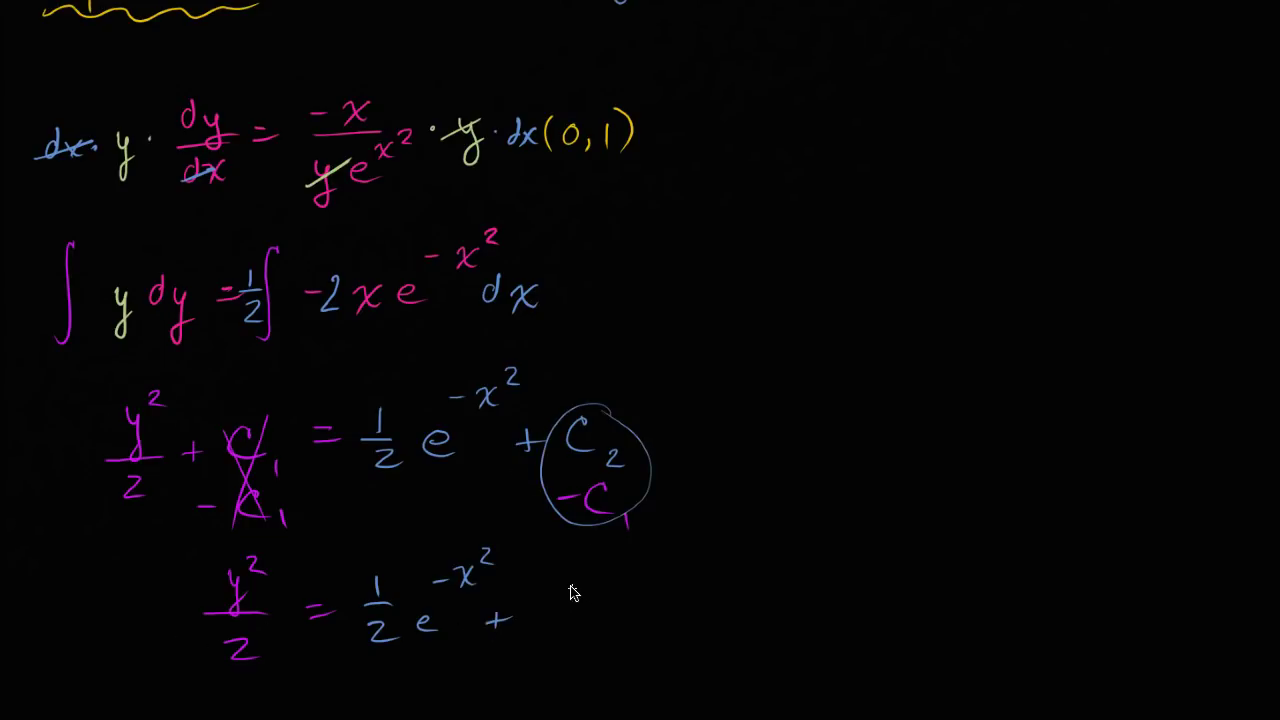 dx · y · dy/dx = -x/(y e^{x^2}) · y · dx (0,1)
∫ y dy = 1/2 ∫ -2x e^{-x^2} dx
y^2/2 + C_1 = 1/2 e^{-x^2} + C_2
- C_1 - C_1
y^2/2 = 1/2 e^{-x^2} +